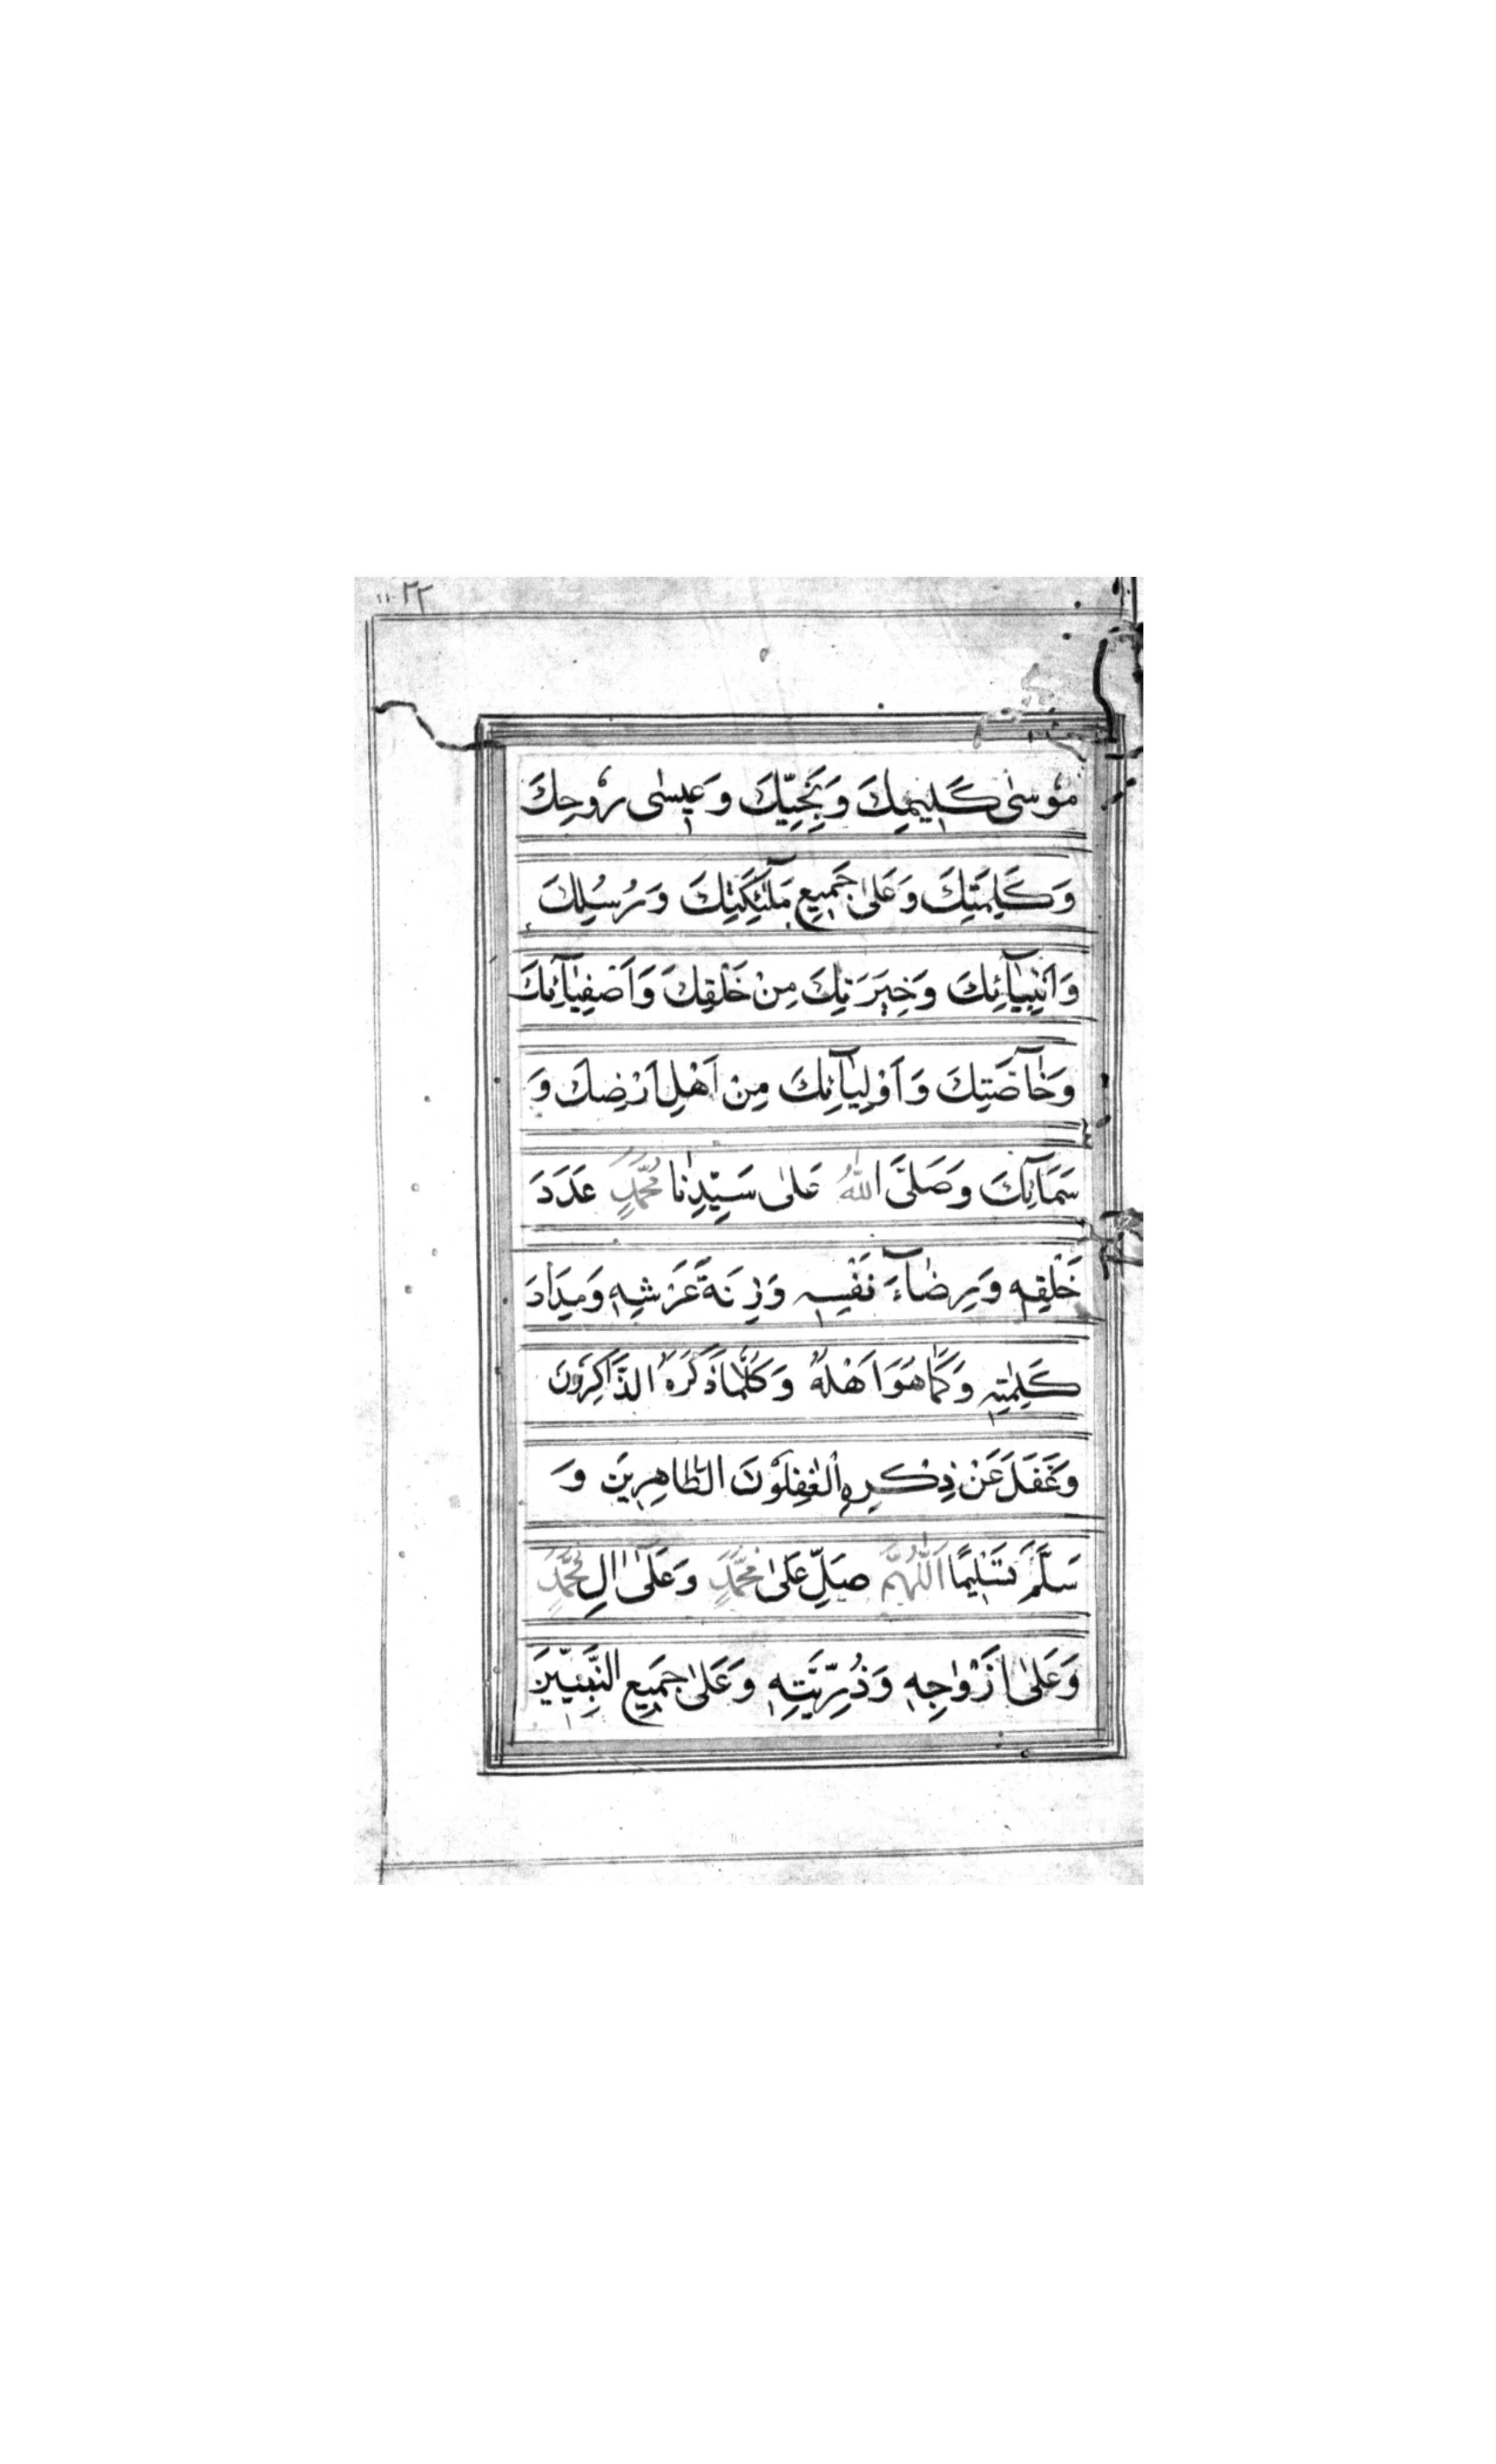 مُوسٰى كَلِيمِكَ وَنَجِيِّكَ وَعِيسٰى رُوحِكَ
وَكَلِمَتِكَ وَعَلٰى جَمِيعِ مَلٰٓئِكَتِكَ وَرُسُلِكَ
وَاَنْبِيَآئِكَ وَخِيَرَتِكَ مِنْ خَلْقِكَ وَاَصْفِيَآئِكَ
وَخَآصَّتِكَ وَاَوْلِيَآئِكَ مِنْ اَهْلِ اَرْضِكَ وَ
سَمَآئِكَ وَصَلَّى اللّٰهُ عَلٰى سَيِّدِنَا مُحَمَّدٍ عَدَدَ
خَلْقِهٖ وَرِضَآءَ نَفْسِهٖ وَزِنَةَ عَرْشِهٖ وَمِدَادَ
كَلِمٰتِهٖ وَكَمَا هُوَ اَهْلُهُ وَكُلَّمَا ذَكَرَهُ الذَّاكِرُونَ
وَغَفَلَ عَنْ ذِكْرِهِ الْغٰفِلُوْنَ الطَّاهِرِينَ وَ
سَلَّمَ تَسْلِيمًا اَللّٰهُمَّ صَلِّ عَلٰى مُحَمَّدٍ وَعَلٰٓى اٰلِ مُحَمَّدٍ
وَعَلٰى اَزْوَاجِهٖ وَذُرِّيَّتِهٖ وَعَلٰى جَمِيعِ النَّبِيّٖينَ